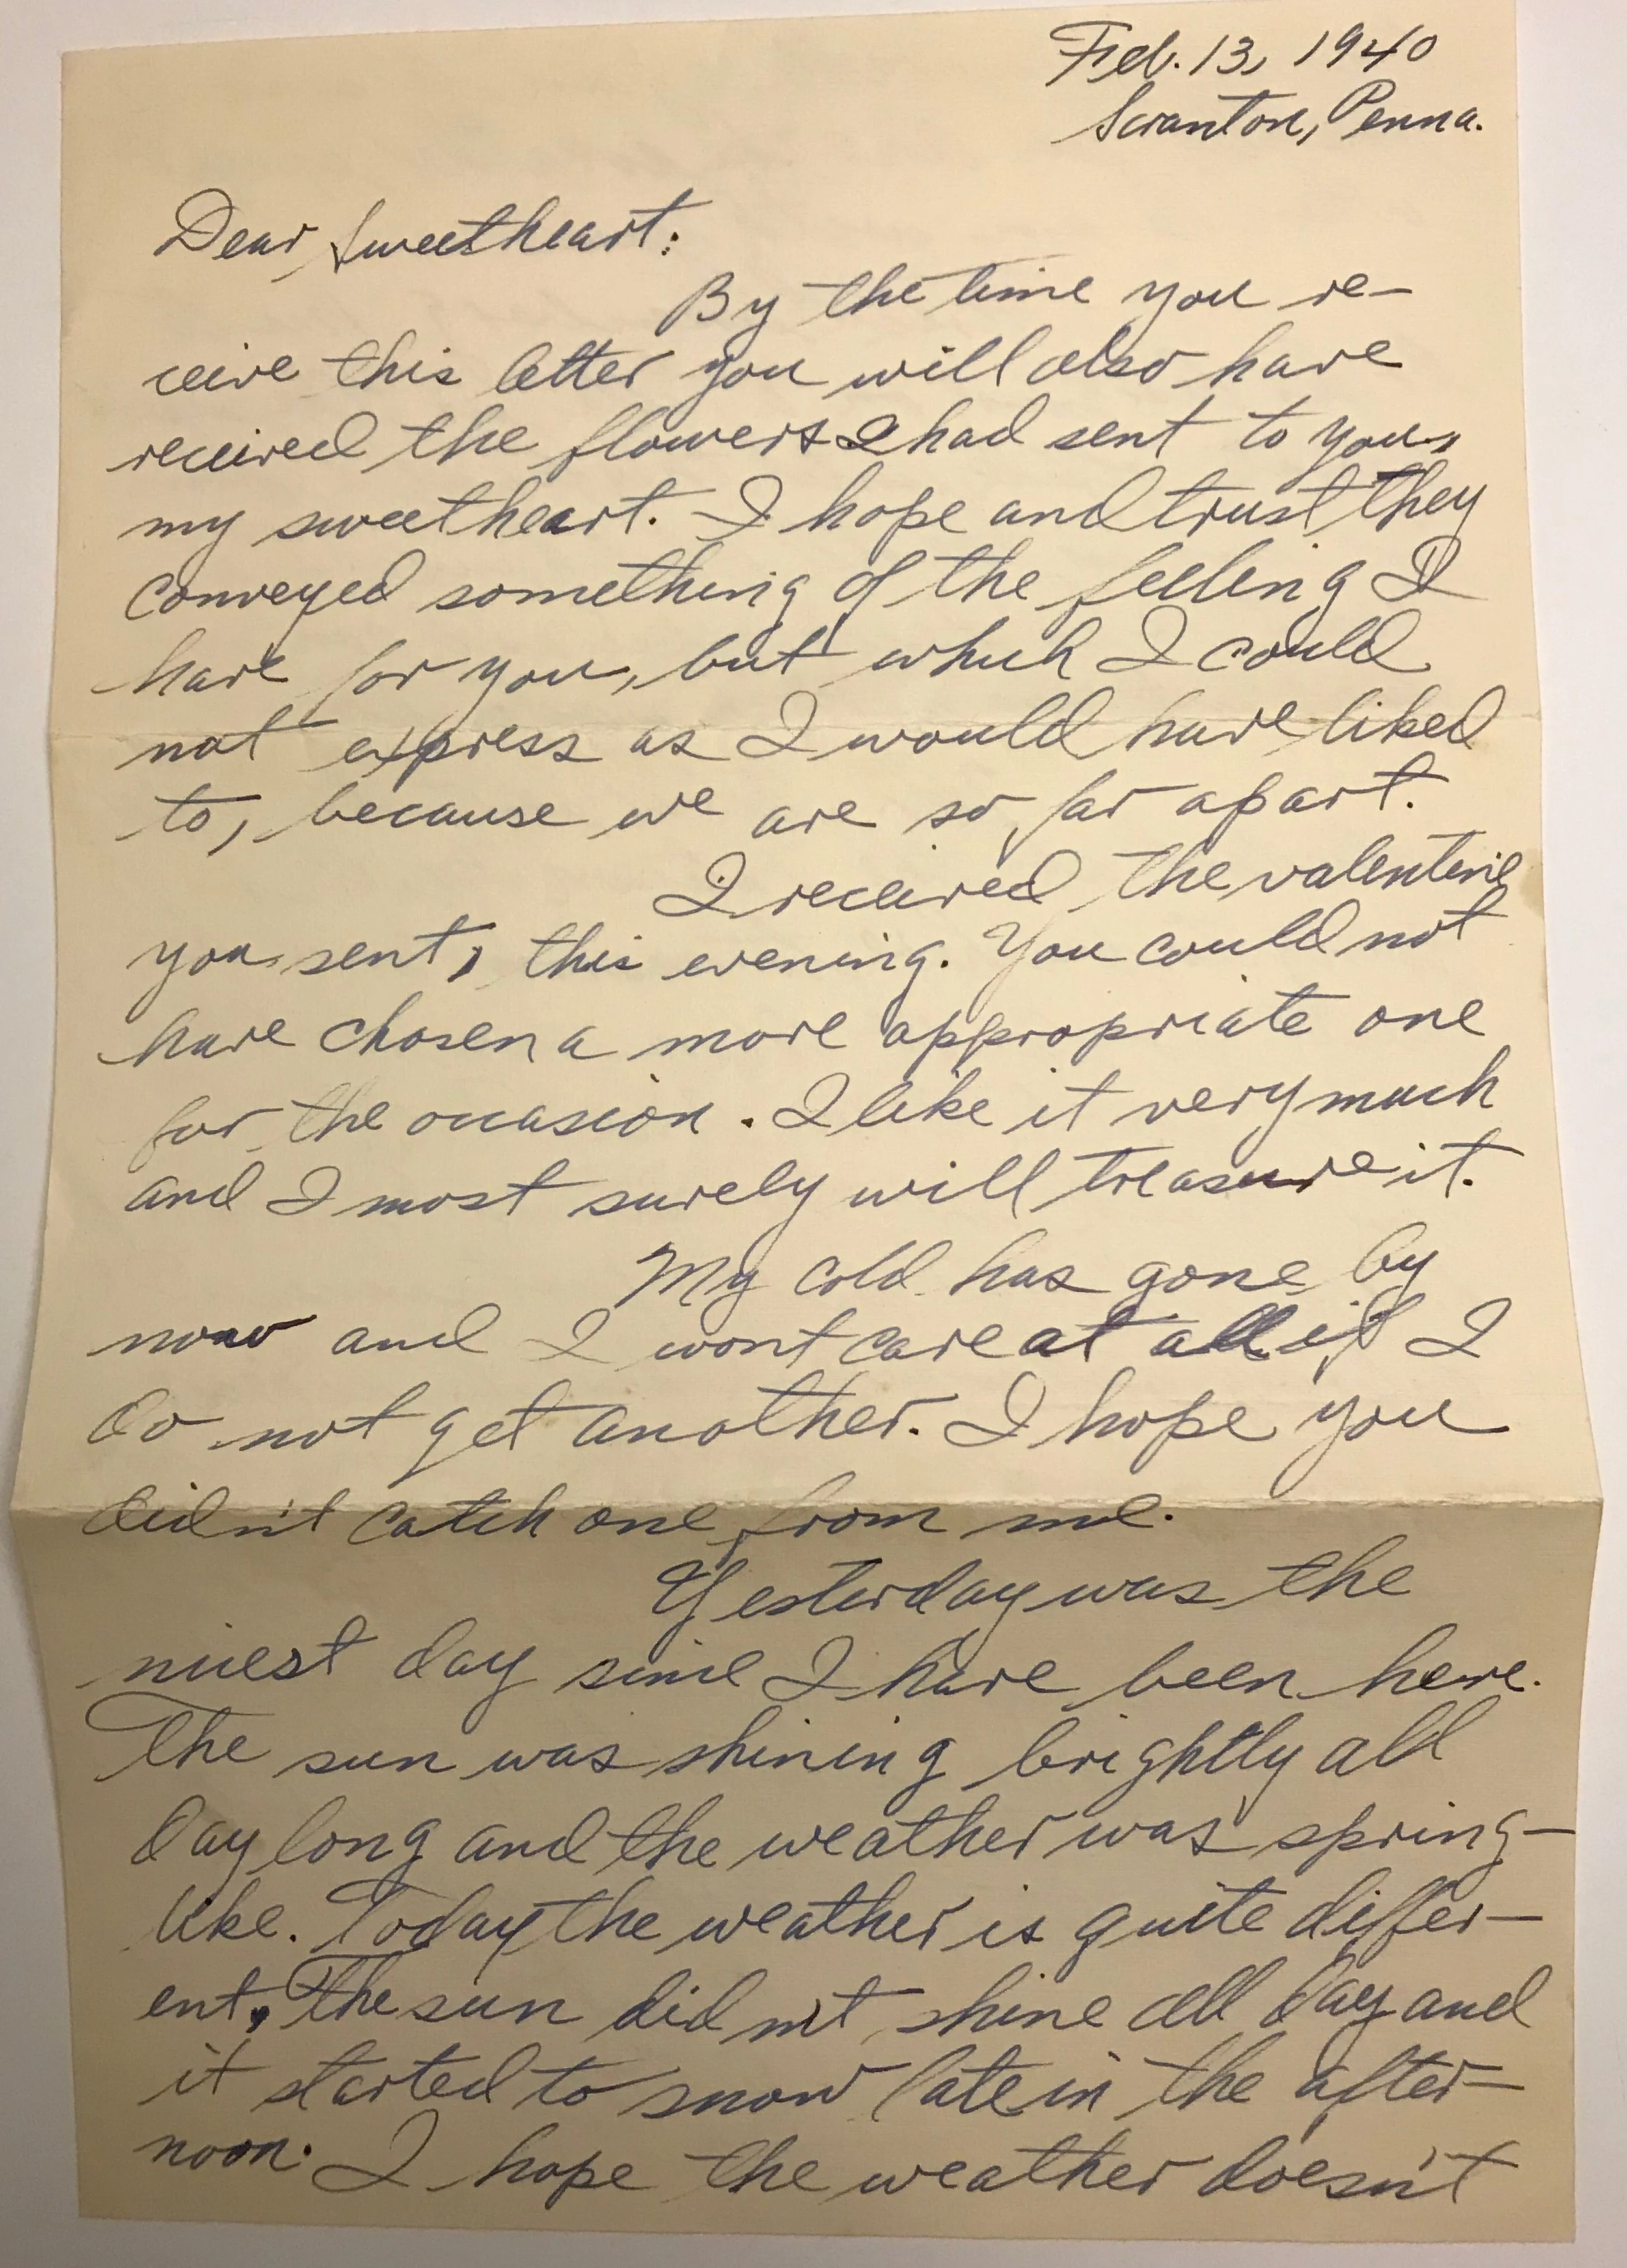 Feb. 13, 1940
Scranton, Penna.
Dear Sweetheart:
By the time you re-
ceive this letter you will also have
received the flowers I had sent to you,
my sweetheart. I hope and trust they
conveyed something of the feeling I
have for you, but which I could
not express as I would have liked
to, because we are so far apart.
I received the valentine
you sent, this evening. You could not
have chosen a more appropriate one
for the occasion. I like it very much
and I most surely will treasure it.
My cold has gone by
now and I wont care at all if I
do not get another. I hope you
didn't catch one from me.
Yesterday was the
nicest day since I have been here.
The sun was shining brightly all
day long and the weather was spring-
like. Today the weather is quite differ-
ent. The sun did not shine all day and
it started to snow late in the after-
noon. I hope the weather doesn't